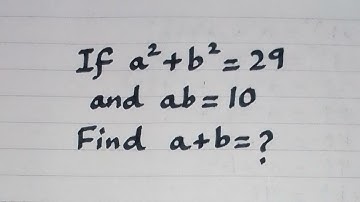 If a²+b²=29
and ab=10
Find a+b=?